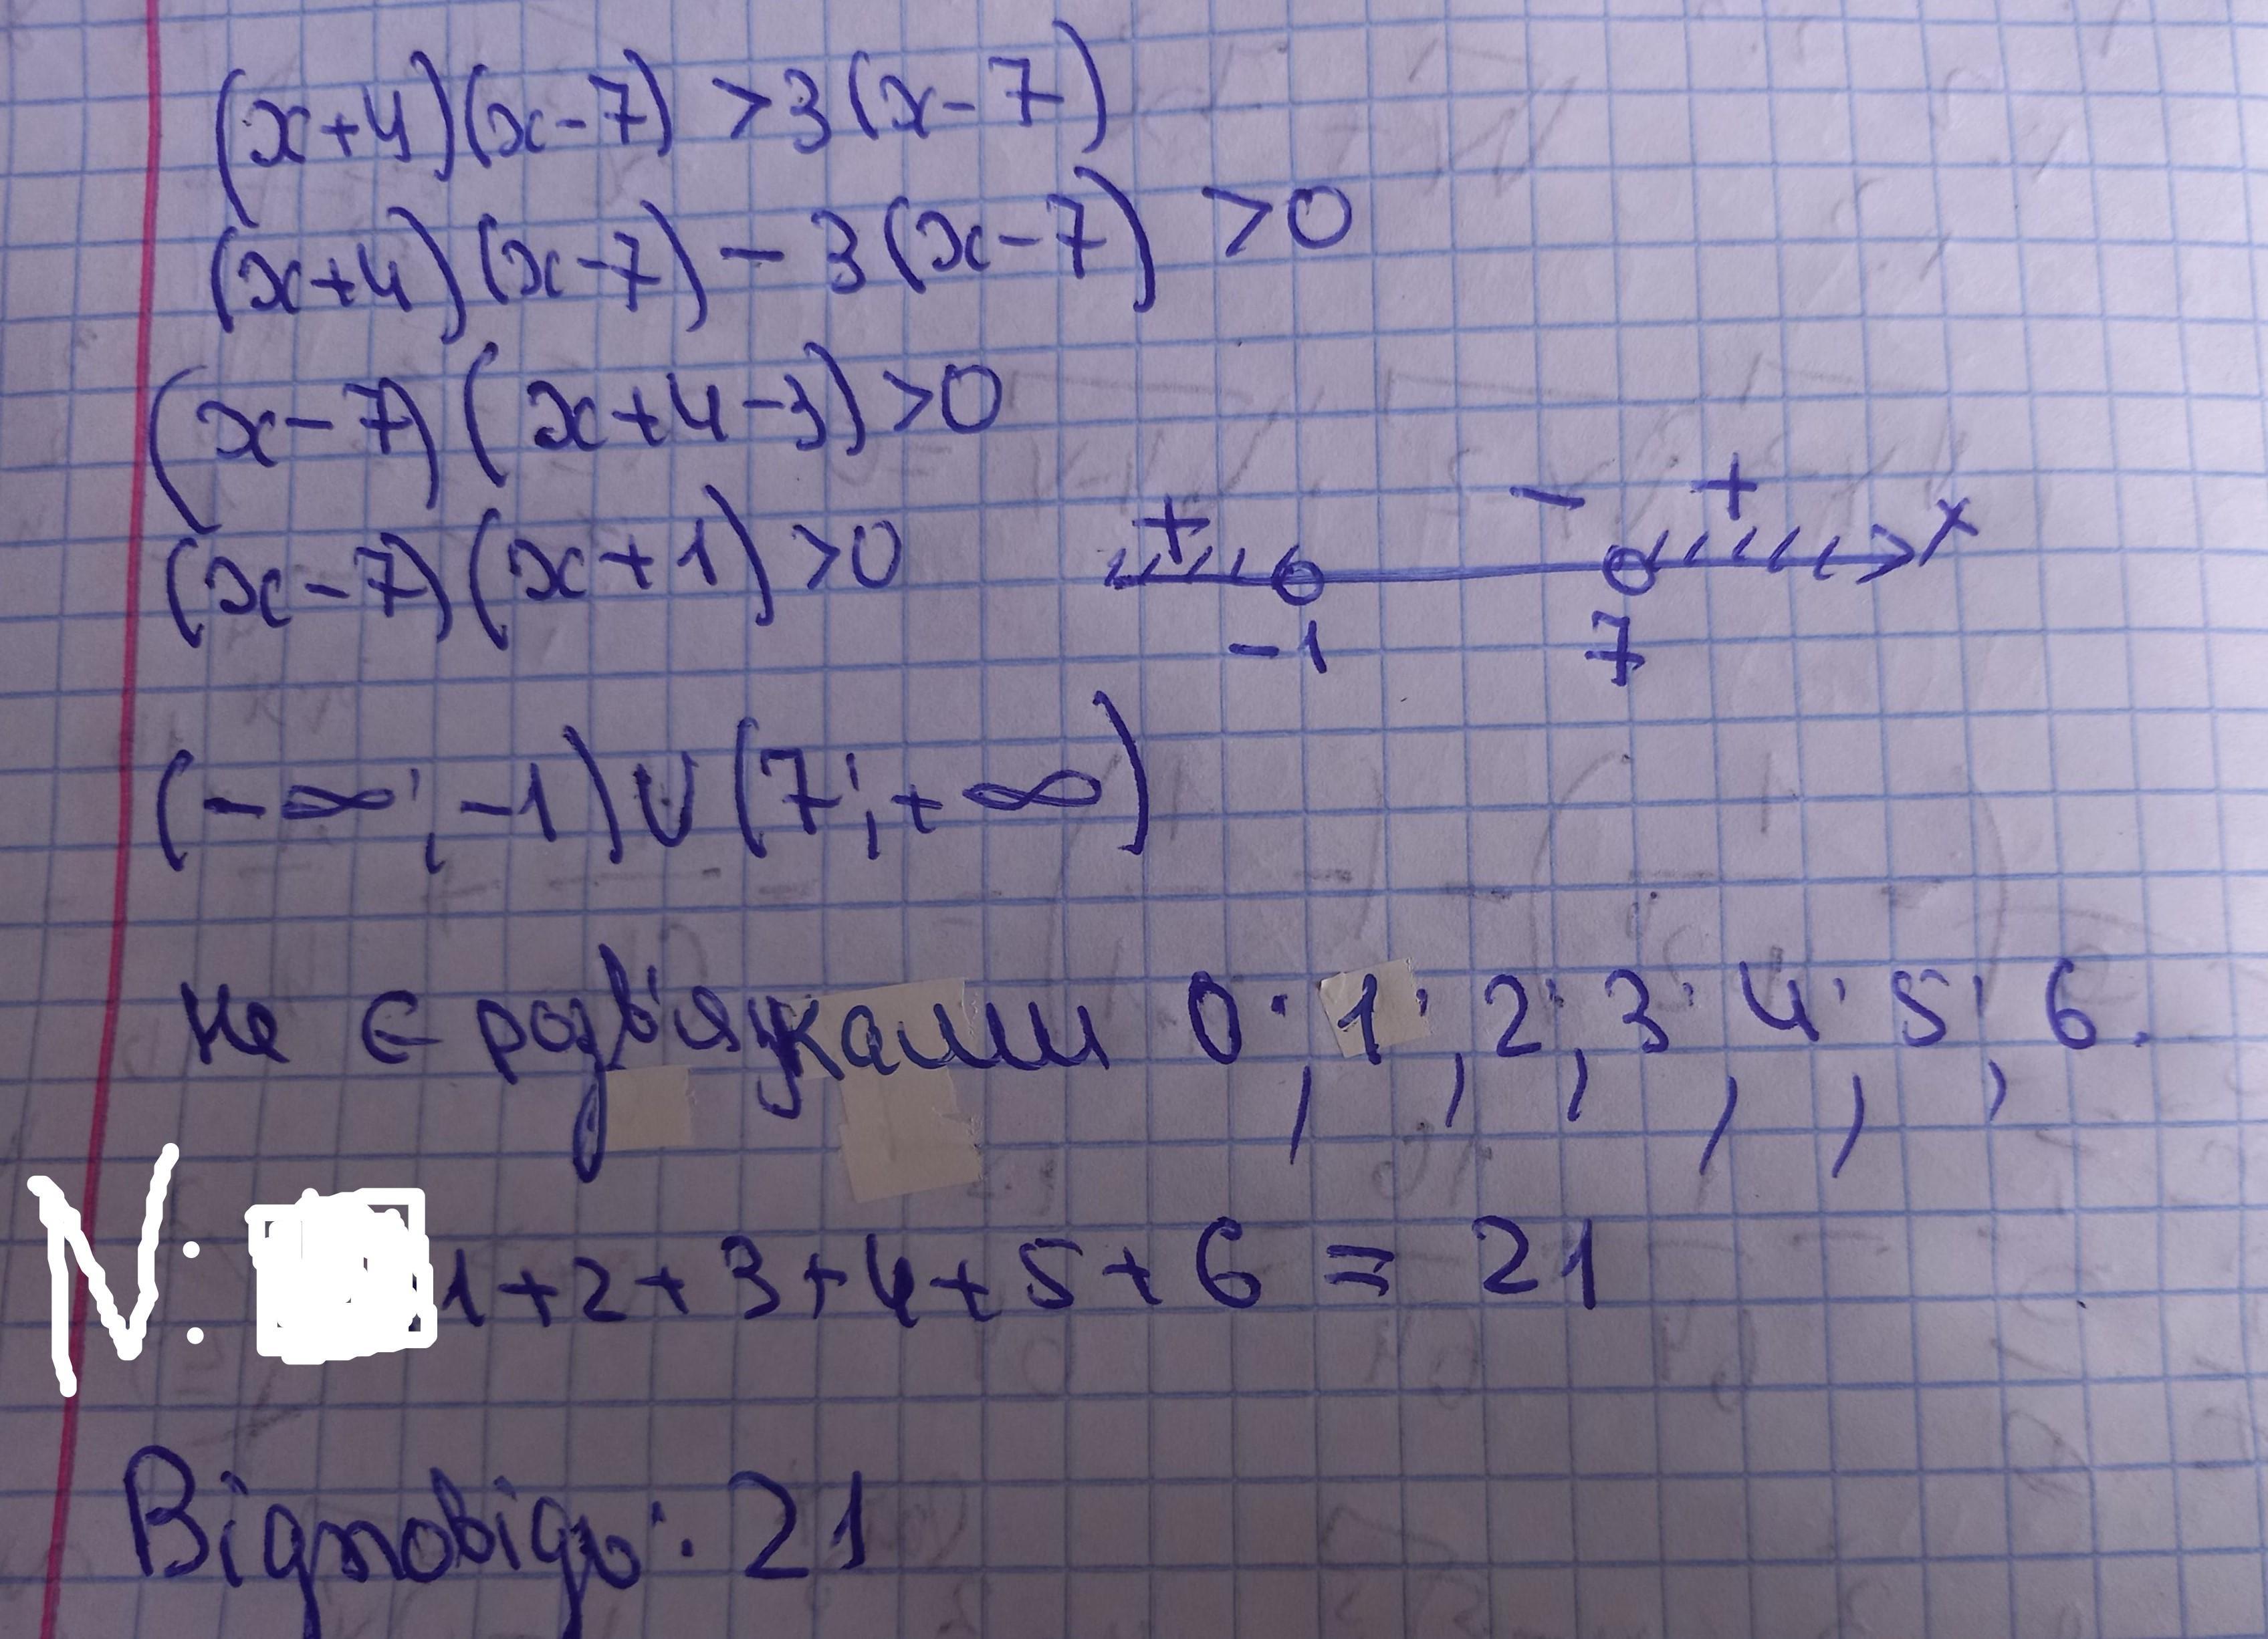 (x+4)(x-7) >3(x-7)
(x+4)(x-7)-3(x-7) >0
(x-7)(x+4-3)>0
(x-7)(x+1)>0
+ - + x
-1 7
(-∞;-1)∪(7;+∞)
не є розв'язками 0; 1; 2; 3; 4; 5; 6.
N: 1+2+3+4+5+6=21
Відповідь: 21